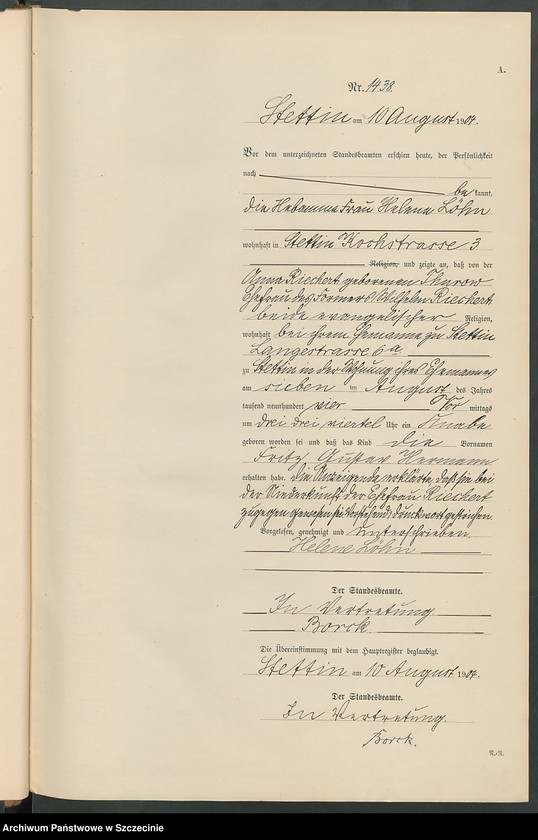 A.
Nr. 1438.
Stettin am 10 August 1904.
Vor dem unterzeichneten Standesbeamten erschien heute, der Persönlichkeit
nach be kannt,
die Hebamme Frau Helene Löhn
wohnhaft in Stettin Kochstrasse 3
Religion, und zeigte an, daß von der
Anna Riechert geborenen Thurow
Ehefrau des Formers Wilhelm Riechert
beide evangelischer Religion,
wohnhaft bei ihrem Ehemanne zu Stettin
Langestrasse 6a
zu Stettin in der Wohnung ihres Ehemannes
am sieben ten August des Jahres
tausend neunhundert vier Vor mittags
um drei drei viertel Uhr ein Knabe
geboren worden sei und daß das Kind die Vornamen
Fritz Gustav Hermann
erhalten habe. Die Anzeigende erklärte, daß sie bei
der Niederkunft der Ehefrau Riechert
zugegen gewesen sei. Vorstehend 1 Druckwort gestrichen.
Vorgelesen, genehmigt und unterschrieben.
Helene Löhn
Der Standesbeamte.
In Vertretung
Borck.
Die Übereinstimmung mit dem Hauptregister beglaubigt.
Stettin am 10 August 1904.
Der Standesbeamte.
In Vertretung.
Borck.
Archiwum Państwowe w Szczecinie